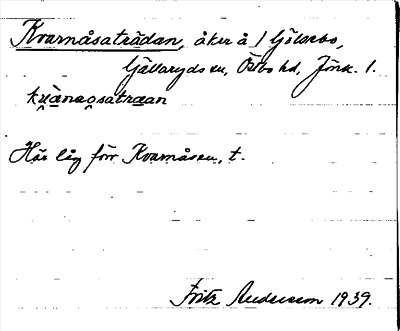 Kvarnåsaträdan, åker å 1 Gölsebo,
Gällaryds sn, Östbo hd, Jönk. l.
Här låg förr Kvarnåsen, t.
Fritz Andersson 1939.